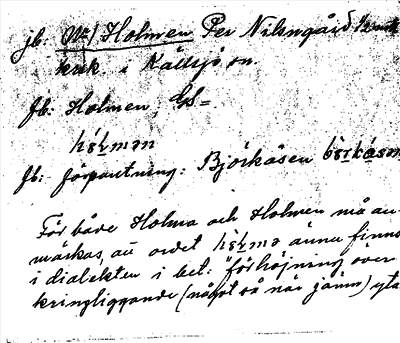 jb: Holmen Per Nilsngård
kuk. i Källsjö sn.
Jb: Holmen, GS=
hólmən
Jb: förpantning: Björkåsen
För både Holma och Holmen må an-
märkas, att ordet ännu finns
i dialekten i bet: "förhöjning över
kringliggande (något så när jämn) yta